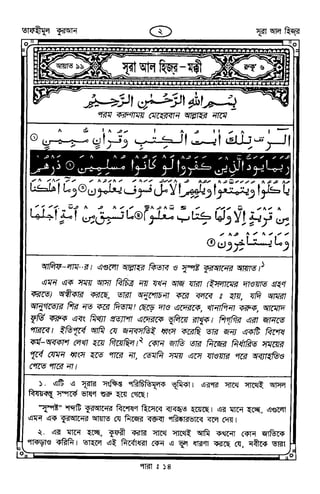 তাফহীমুল কুরআন
২
সূরা আল হিজর
আয়াত ৯৯
সূরা আল হিজর – মক্কী
রুকূ ৬
بِسْمِ اللهِ الرَّحْمٰنِ الرَّحِيْمِ
পরম করুণাময় মেহেরবান আল্লাহর নামে
الٓرٰ تِلْكَ اٰيٰتُ الْكِتٰبِ وَقُرْاٰنٍ مُّبِيْنٍ ①
رُبَمَا يَوَدُّ الَّذِيْنَ كَفَرُوْا لَوْ كَانُوْا مُسْلِمِيْنَ ② ذَرْهُمْ
يَاْكُلُوْا وَيَتَمَتَّعُوْا وَيُلْهِهِمُ الْاَمَلُ فَسَوْفَ يَعْلَمُوْنَ ③ وَمَا اَهْلَكْنَا
مِنْ قَرْيَةٍ اِلَّا وَلَهَا كِتَابٌ مَّعْلُوْمٌ ④ مَا تَسْبِقُ مِنْ اُمَّةٍ اَجَلَهَا
وَمَا يَسْتَاْخِرُوْنَ ⑤
আলিফ-লাম-র। এগুলো আল্লাহর কিতাব ও সুস্পষ্ট কুরআনের আয়াত।১
এমন এক সময় আসা বিচিত্র নয় যখন আজ যারা (ইসলামের দাওয়াত গ্রহণ
করতে) অস্বীকার করছে, তারা অনুশোচনা করে বলবে ঃ হায়, যদি আমরা
আনুগত্যের শির নত করে দিতাম! ছেড়ে দাও এদেরকে, খানাপিনা করুক, আমোদ
ফূর্তি করুক এবং মিথ্যা প্রত্যাশা এদেরকে ভুলিয়ে রাখুক। শিগ্‌গির এরা জানতে
পারবে। ইতিপূর্বে আমি যে জনবসতিই ধ্বংস করেছি তার জন্য একটি বিশেষ
কর্ম-অবকাশ লেখা হয়ে গিয়েছিল।২ কোন জাতি তার নিজের নির্ধারিত সময়ের
পূর্বে যেমন ধ্বংস হতে পারে না, তেমনি সময় এসে যাওয়ার পরে অব্যাহতিও
পেতে পারে না।
১. এটি এ সূরার সংক্ষিপ্ত পরিচিতিমূলক ভূমিকা। এরপর সাথে সাথেই আসল
বিষয়বস্তু সম্পর্কে ভাষণ শুরু হয়ে গেছে।
"সুস্পষ্ট" শব্দটি কুরআনের বিশেষণ হিসেবে ব্যবহৃত হয়েছে। এর মানে হচ্ছে, এগুলো
এমন এক কুরআনের আয়াত যে নিজের বক্তব্য পরিষ্কারভাবে বলে দেয়।
২. এর মানে হচ্ছে, কুফরী করার সাথে সাথেই আমি কখনো কোন জাতিকে
পাকড়াও করিনি। তাহলে এই নির্বোধরা কেন এ ভুল ধারণা করছে যে, নবীকে তারা
পারা ঃ ১৪